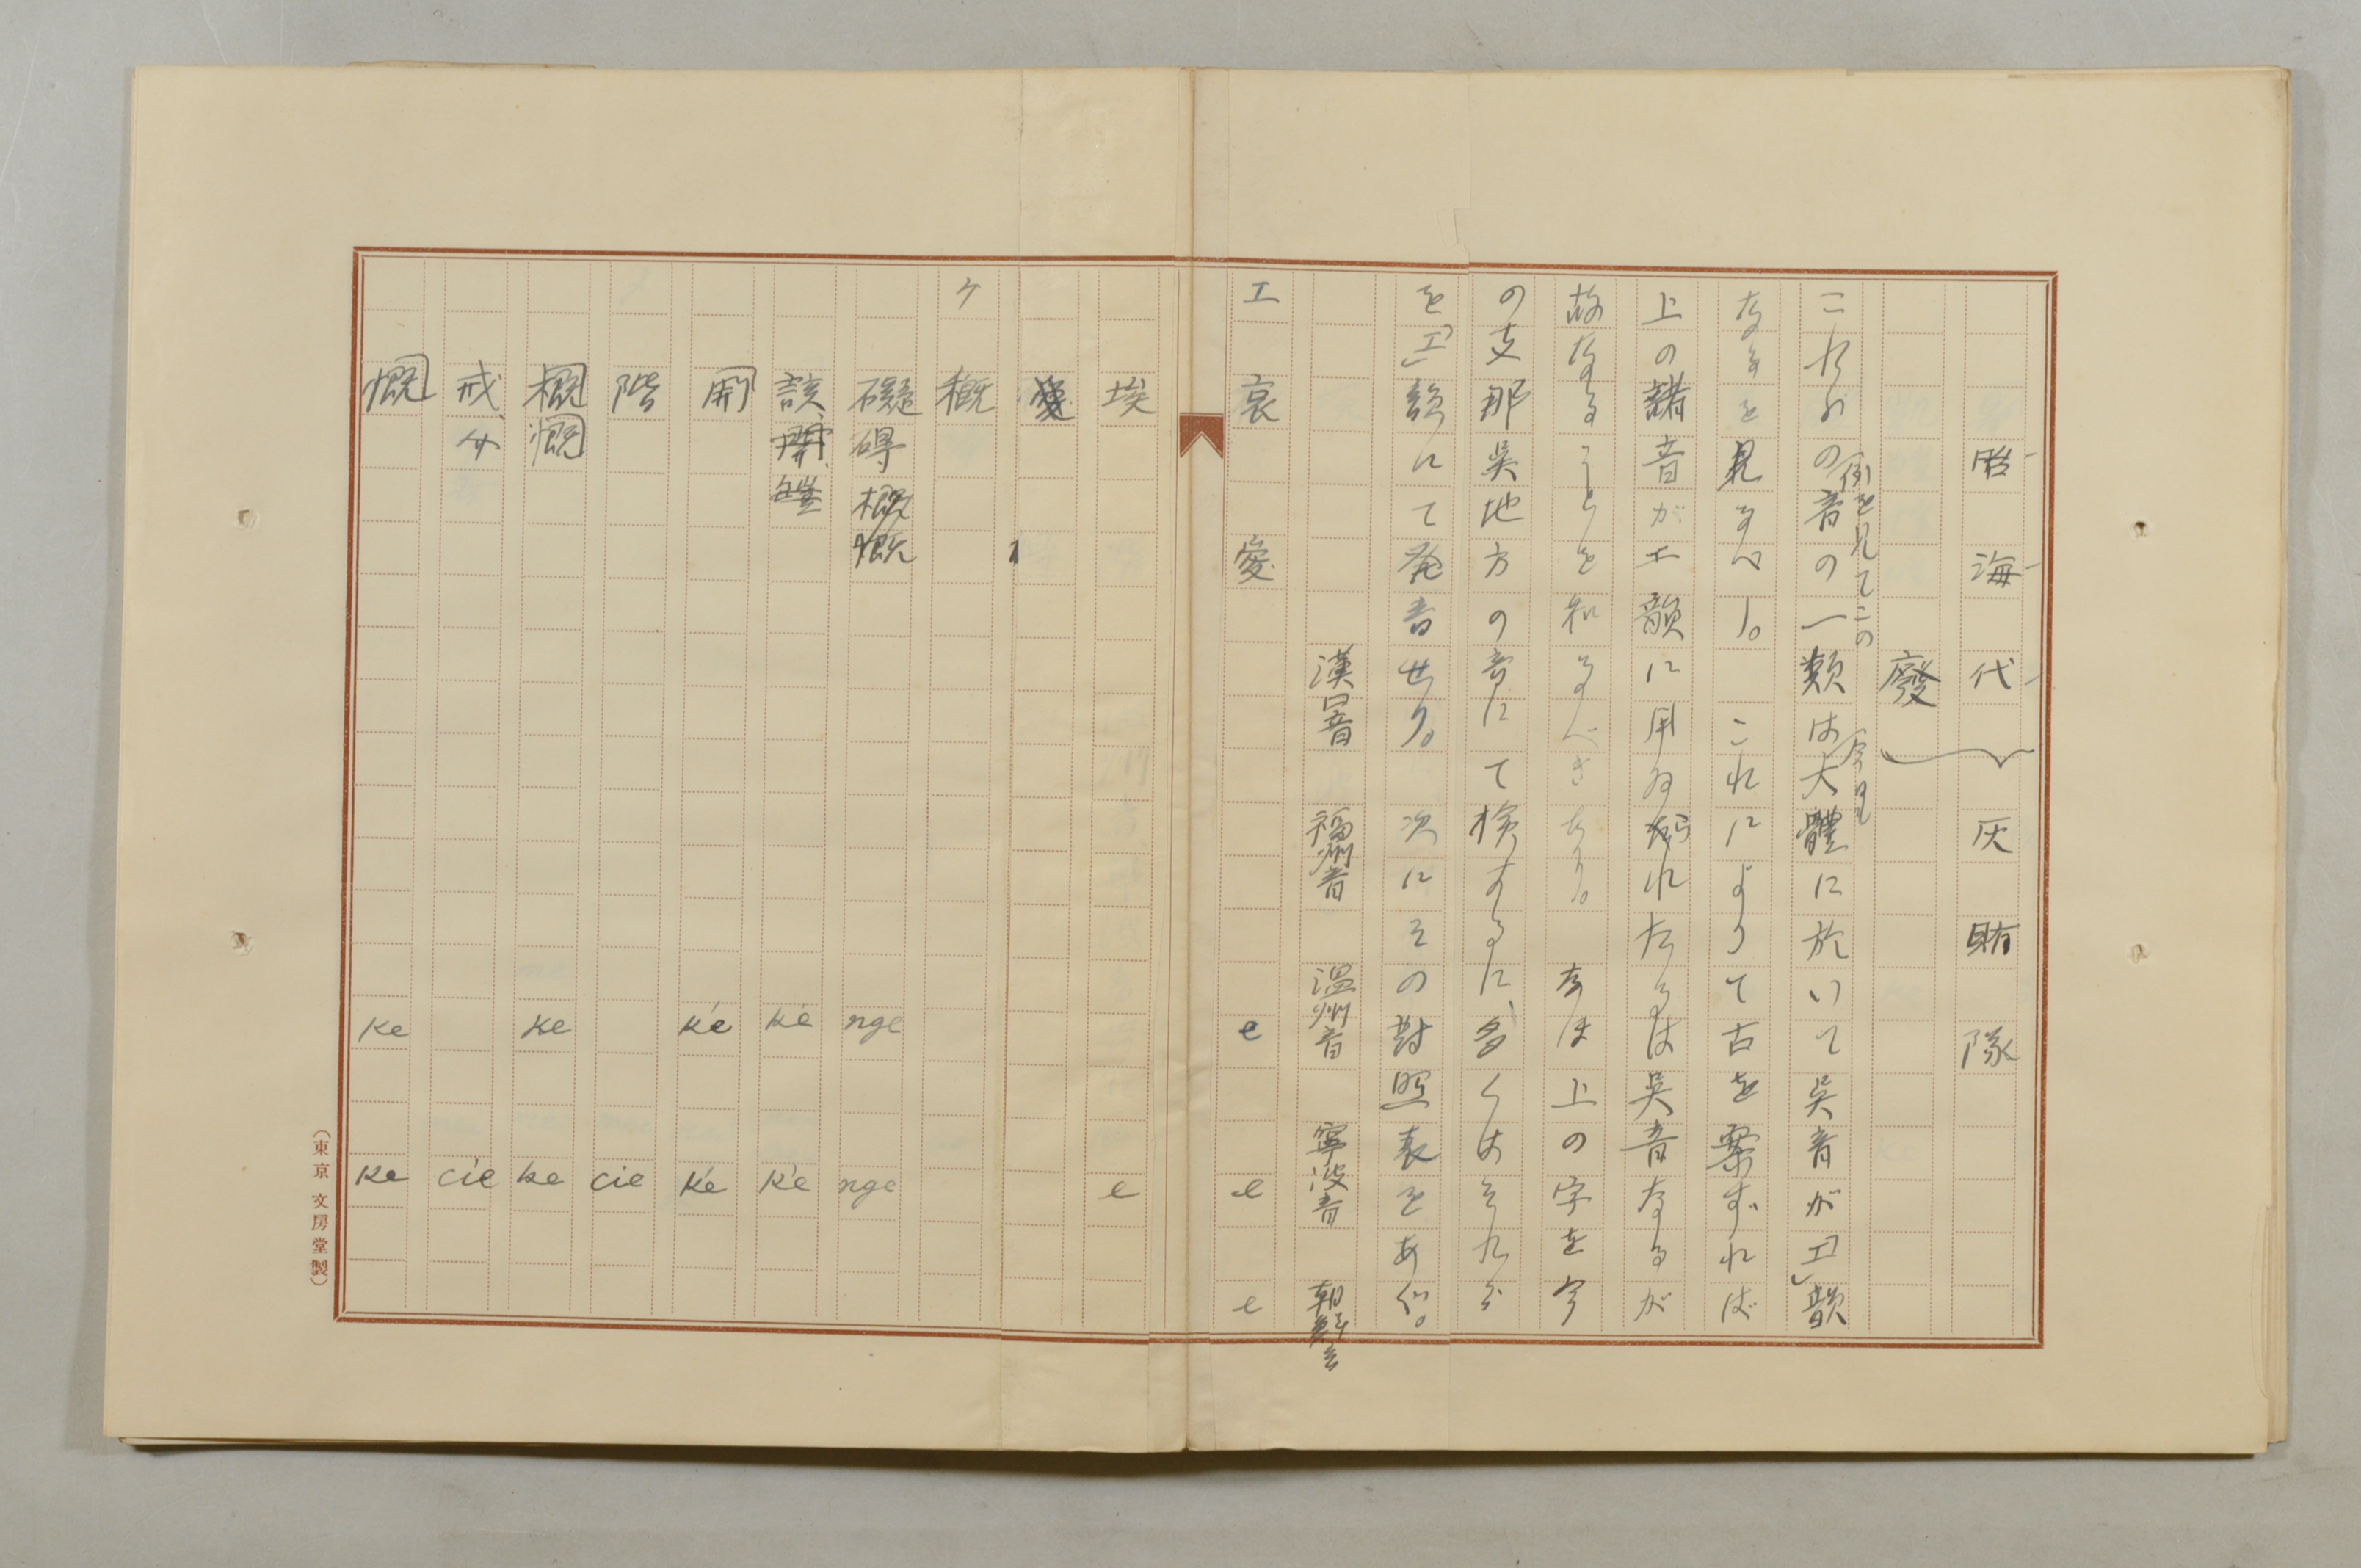 咍 海 代 灰 賄 隊
廢
これらの音の一類は大體に於いて吳音が「エ」韻
例を見てこの
今日も
なるを見るべし。 これによりて古を案ずれば
上の諸音がエ韻に用ゐられたるは吳音なるが
故なることを知るべきなり。 なほ上の字を今
の支那吳地方の音にて検するに、多くはそれら
を「エ」韻にて発音せり。 次にその對照表をあぐ。
漢字音 福州音 温州音 寧波音 朝鮮音
エ 哀 愛 e e e
埃 e
愛
ケ 概
礙 碍 概 慨 nge nge
該、開、 k'e k'e
開 k'e k'e
階 cie
概 慨 ke ke
戒、 cie
慨 ke ke
(東京 文房堂製)